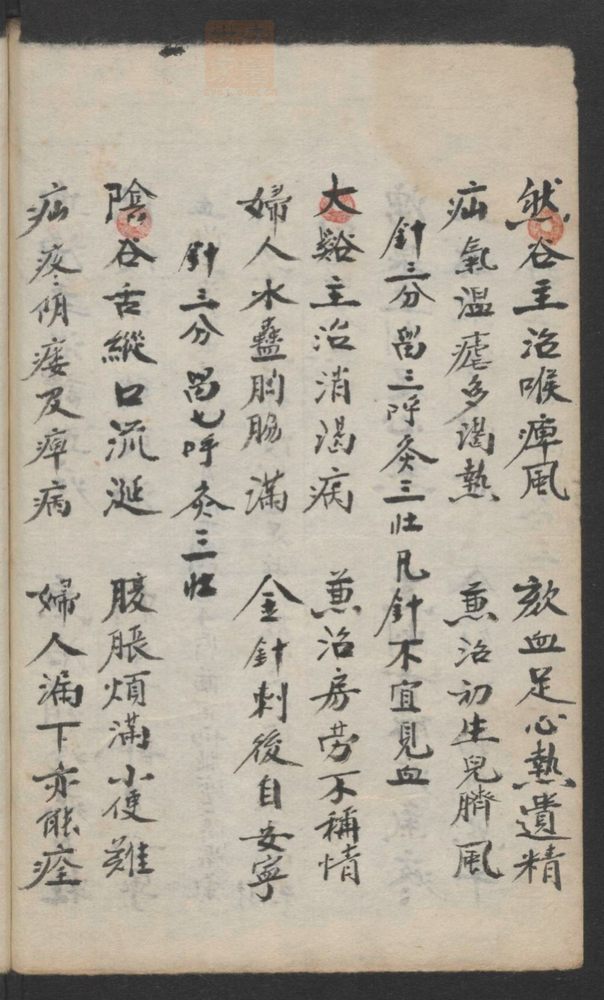 然谷主治喉痺風　欬血足心熱遺精
疝氣温瘧多渴熱　兼治初生兒臍風
針三分畄三呼灸三壮凡針不宜見血
大谿主治消渴病　兼治房劳不稱情
婦人水蠱胸脇滿　金針刺後自安寧
針三分畄七呼灸三壮
陰谷舌縱口流涎　腹脹煩滿小便難
疝疼阴痿及痺病　婦人漏下亦能痊